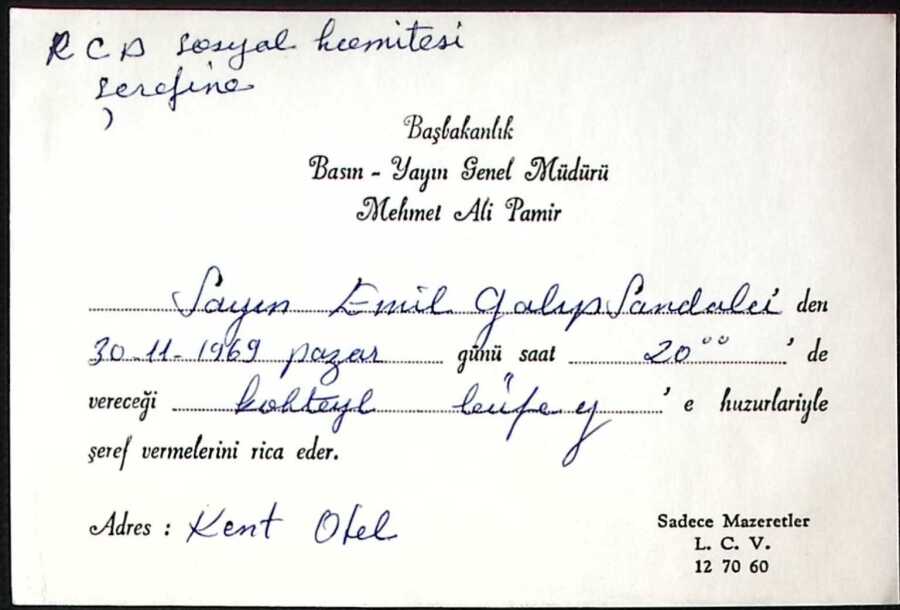 R C D sosyal komitesi
şerefine
Başbakanlık
Basın - Yayın Genel Müdürü
Mehmet Ali Pamir
Sayın Emil Galip Sandalcı' den
30-11-1969 pazar günü saat 20°° ' de
vereceği kokteyl büfe y ' e huzurlariyle
şeref vermelerini rica eder.
Adres : Kent Otel
Sadece Mazeretler
L. C. V.
12 70 60